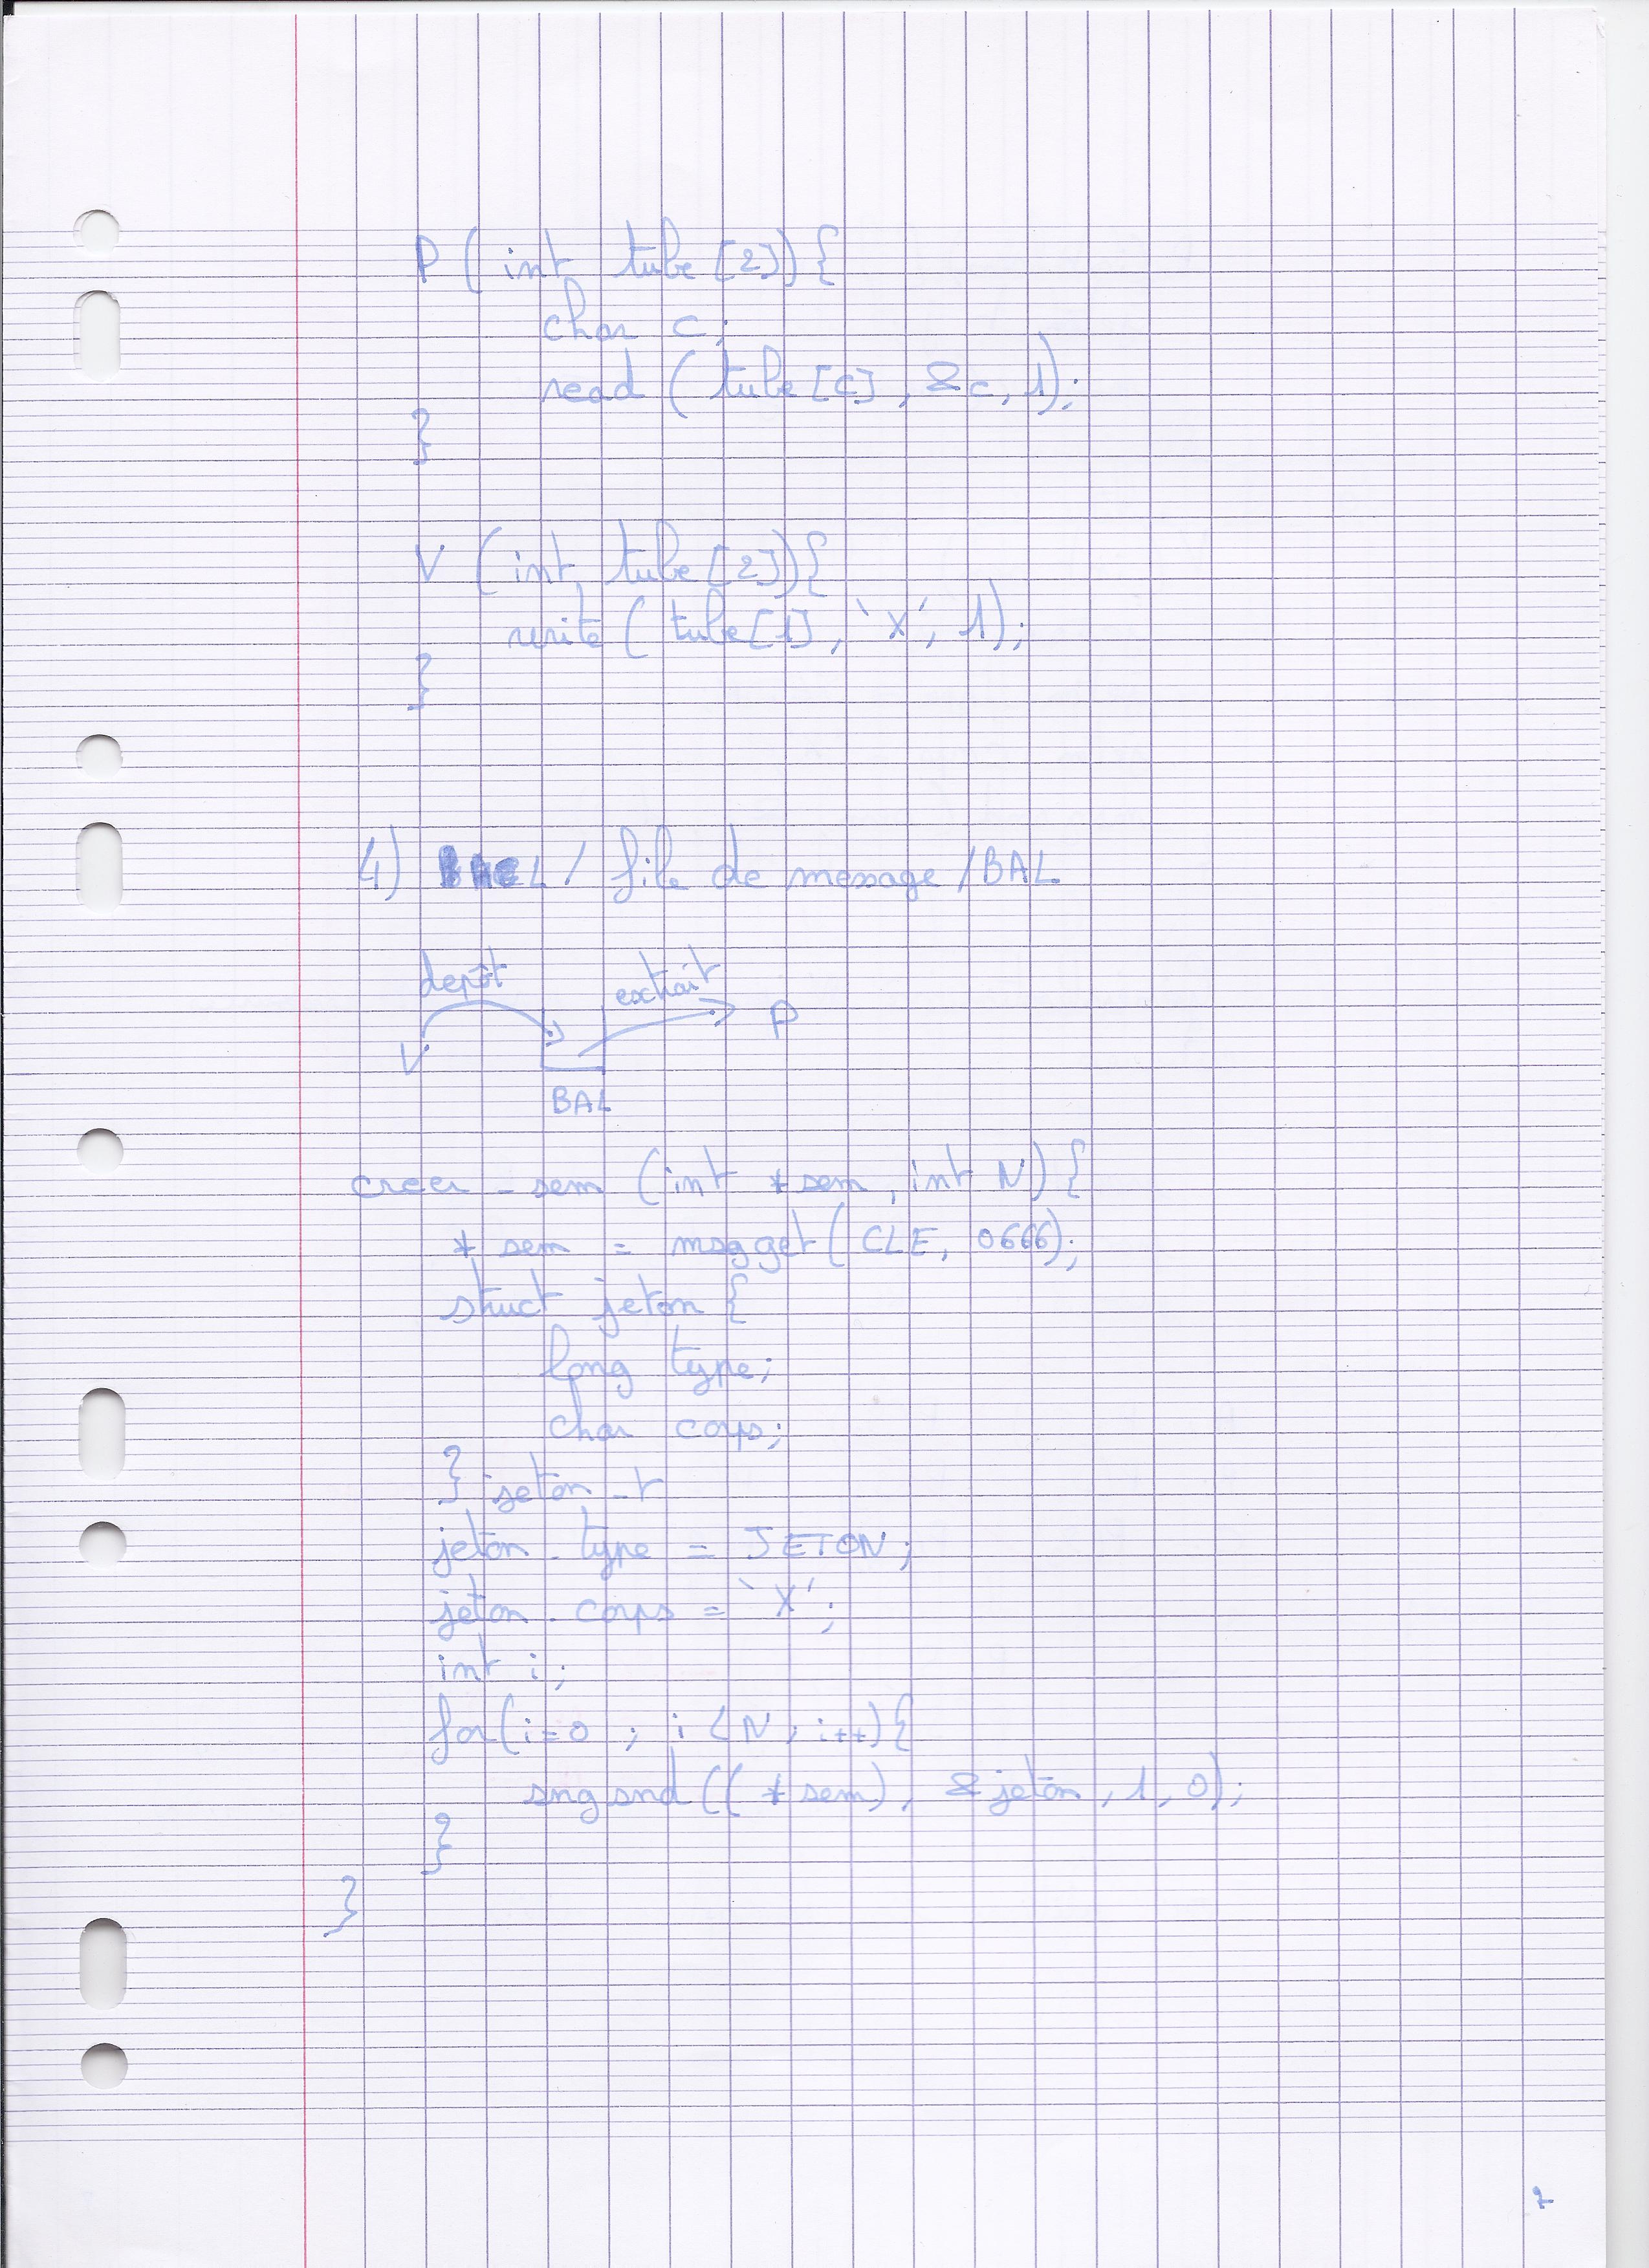 P (int tube [2]) {
char c;
read ( tube [c] , &c, 1);
}
V (int tube [2]) {
write ( tube[1] , 'X', 1);
}
4) / file de message / BAL
depôt
extrait
V
P
BAL
creer _ sem (int *sem, int N) {
* sem = msgget ( CLE, 0666);
struct jeton {
long type;
char corps;
} jeton _t
jeton . type = JETON;
jeton . corps = 'X';
int i;
for (i=0 ; i < N ; i++) {
sngsnd (( *sem) , &jeton , 1, 0);
}
}